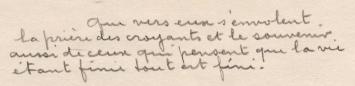 Que vers eux s'envolent
la prière des croyants et le souvenir
aussi de ceux qui pensent que la vie
étant finie tout est fini.